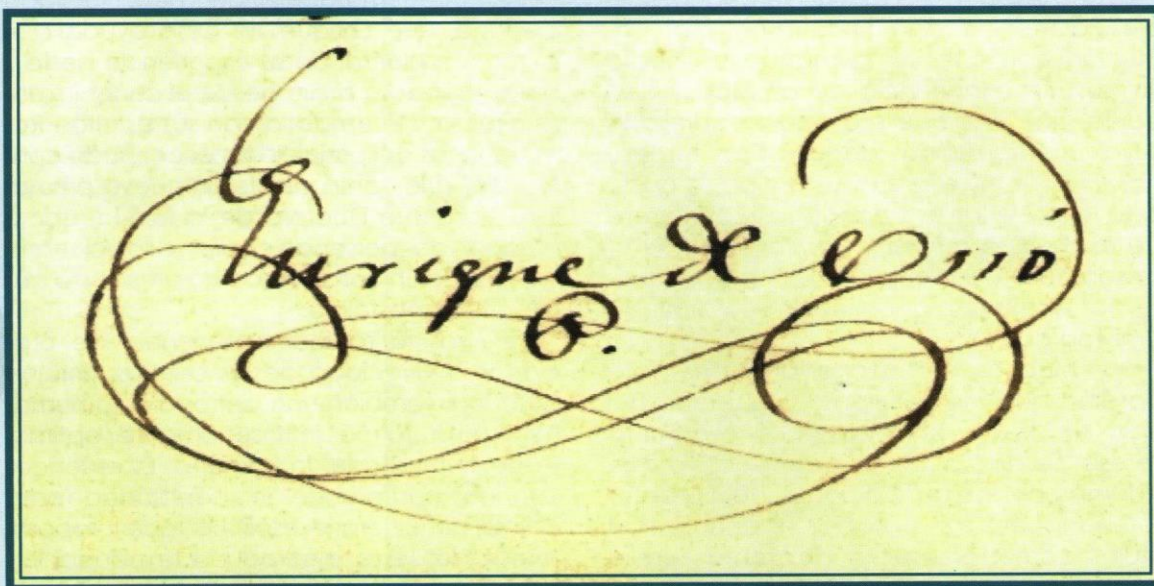 Enrique de Ossó